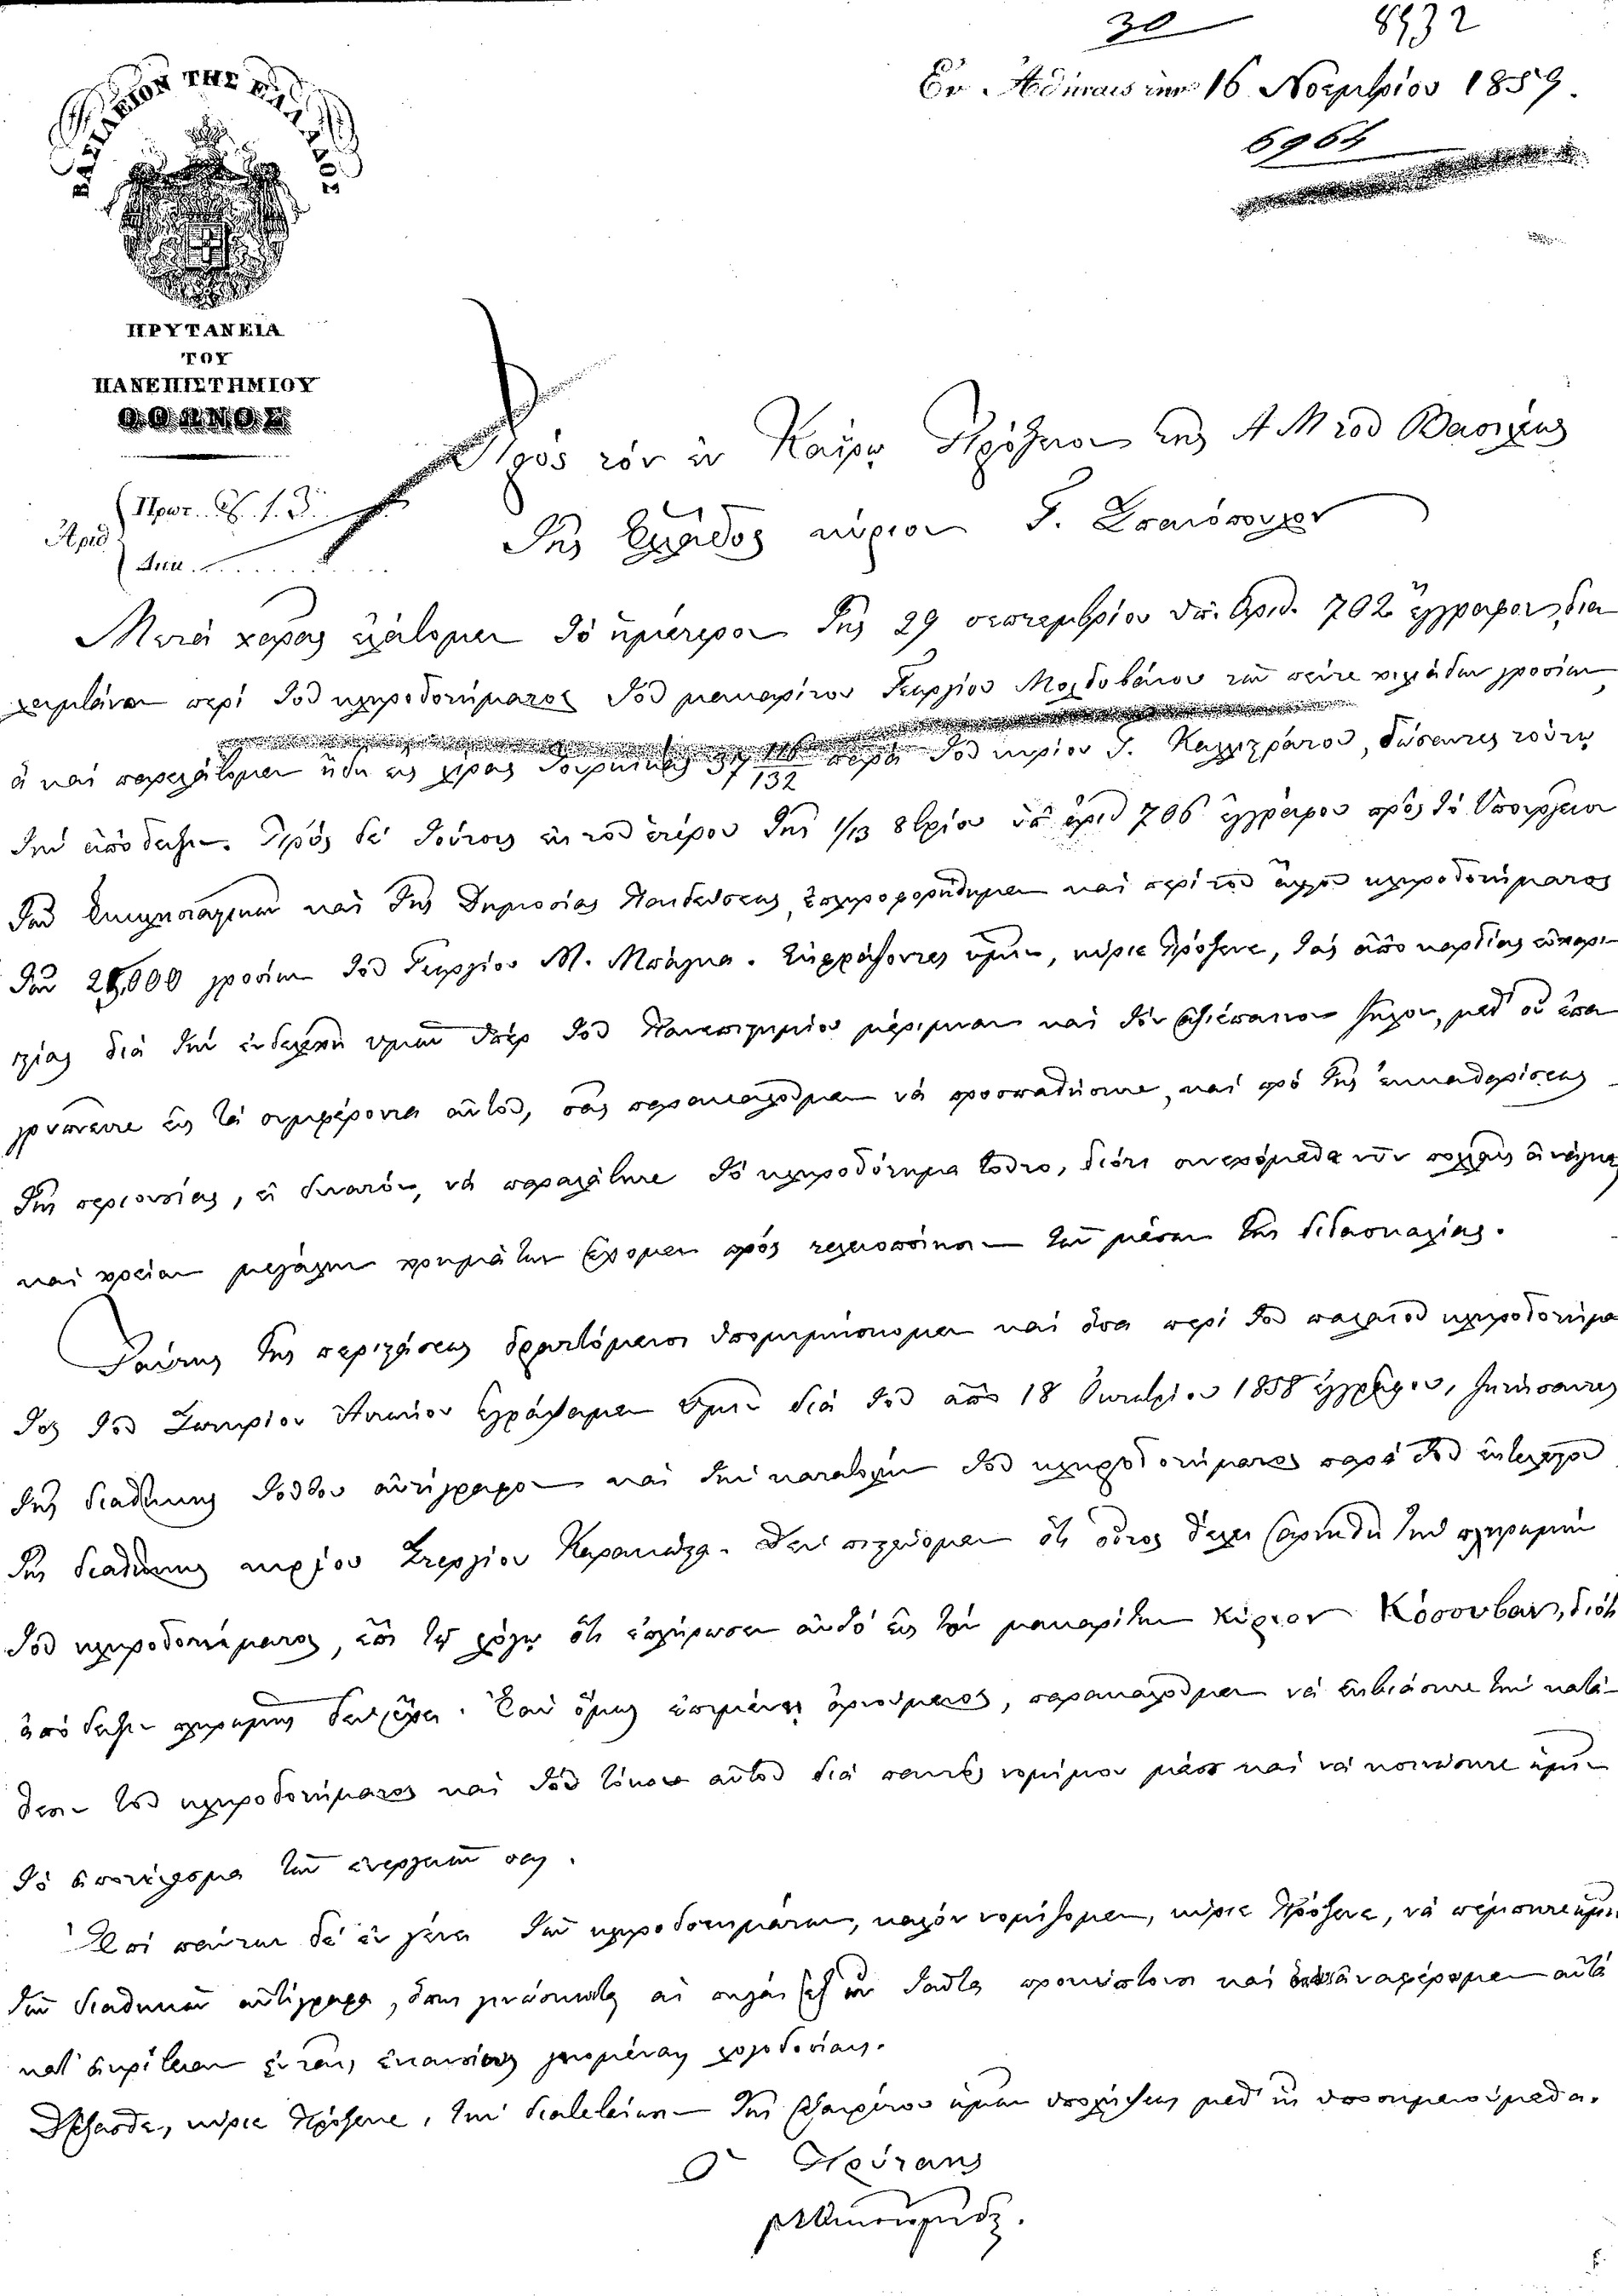 30 8932
Ἐν Ἀθήναις τῇ 16 Νοεμβρίου 1859.
6964
ΒΑΣΙΛΕΙΟΝ ΤΗΣ ΕΛΛΑΔΟΣ
ΠΡΥΤΑΝΕΙΑ
ΤΟΥ
ΠΑΝΕΠΙΣΤΗΜΙΟΥ
ΟΘΩΝΟΣ
Ἀριθ. Πρωτ.
Διεκ.
Πρὸς τὸν ἐν Καΐρῳ Πρόξενον τῆς Α Μ τοῦ Βασιλέως
Τῆς Ἑλλάδος κύριον
Μετὰ χαρᾶς ἐλάβομεν τὸ ὑμέτερον τῆς 29 σεπτεμβρίου ὑπ. ἀριθ. 702 ἔγγραφον, δια
λαμβάνον περὶ τοῦ κληροδοτήματος τοῦ μακαρίτου Γεωργίου Μολδοβάνου τῶν πέντε χιλιάδων γροσίων,
ἃ καὶ παρελάβομεν ἤδη εἰς λίρας Τουρκικὰς 37 116/132 παρὰ τοῦ κυρίου Γ. , δώσαντες τούτῳ
τὴν ἀπόδειξιν. Πρὸς δὲ τούτοις ἐκ τοῦ ἑτέρου τῆς 1/13 8βρίου ὑπ ἀριθ 706 ἐγγράφου πρὸς τὸ Ὑπουργεῖον
τῶν Ἐκκλησιαστικῶν καὶ τῆς Δημοσίας Παιδεύσεως, ἐπληροφορήθημεν καὶ περὶ τοῦ ἄλλου κληροδοτήματος
τῶν 25,000 γροσίων τοῦ Γεωργίου Μ. . Ἐκφράζοντες ὑμῖν, κύριε Πρόξενε, τὰς ἀπὸ καρδίας εὐχαρι-
στίας διὰ τὴν ἐνδελεχῆ ὑμῶν ὑπὲρ τοῦ Πανεπιστημίου μέριμναν καὶ τὸν ἀξιέπαινον ζῆλον, μεθ' οὗ ἐπα
γρυπνεῖτε εἰς τὰ συμφέροντα αὐτοῦ, σᾶς παρακαλοῦμεν νὰ προσπαθήσητε, καὶ πρὸ τῆς ἐκκαθαρίσεως
τῆς περιουσίας, εἰ δυνατόν, νὰ παραλάβητε τὸ κληροδότημα τοῦτο, διότι συνεχόμεθα νῦν πολλαῖς ἀνάγκαις
καὶ χρείαν μεγάλων χρημάτων ἔχομεν πρὸς τελειοποίησιν τῶν μέσων τῆς διδασκαλίας.
Ταύτης τῆς περιστάσεως δραττόμενοι ὑπομιμνήσκομεν καὶ ὅσα περὶ τοῦ παλαιοῦ κληροδοτήμα
τος τοῦ Σωτηρίου ἐγράψαμεν ὑμῖν διὰ τοῦ ἀπὸ 18 Ὀκτωβρίου 1858 ἐγγράφου, ζητήσαντες
τῆς διαθήκης τούτου ἀντίγραφον καὶ τὴν καταβολὴν τοῦ κληροδοτήματος παρὰ τοῦ ἐκτελεστοῦ
τῆς διαθήκης κυρίου Στεργίου . Δὲν πιστεύομεν ὅτι οὗτος θέλει ἀρνηθῆ τὴν πληρωμὴν
τοῦ κληροδοτήματος, ἐπὶ τῷ λόγῳ ὅτι ἐπλήρωσεν αὐτὸ εἰς τὸν μακαρίτην κύριον , διότι
ἀπόδειξιν πληρωμῆς δὲν ἔχει. Ἐὰν ὅμως ἐπιμένῃ ἀρνούμενος, παρακαλοῦμεν νὰ ἐκβιάσητε τὴν κατά-
θεσιν τοῦ κληροδοτήματος καὶ τοῦ τόκου αὐτοῦ διὰ παντὸς νομίμου μέσου καὶ νὰ κοινώσητε ἡμῖν
τὸ ἀποτέλεσμα τῶν ἐνεργειῶν σας.
Ἐπὶ πάντων δὲ ἐν γένει τῶν κληροδοτημάτων, καλὸν νομίζομεν, κύριε Πρόξενε, νὰ πέμπητε ἡμῖν
τῶν διαθηκῶν ἀντίγραφα, ὅπως γινώσκωνται αἱ πηγαὶ ἐξ ὧν ταῦτα προκύπτουσι καὶ ἀναφέρωμεν αὐτὰ
κατ' ἀκρίβειαν ἐν ταῖς ἐνιαυσίως γινομέναις λογοδοσίαις.
Δέξασθε, κύριε Πρόξενε, τὴν διαβεβαίωσιν τῆς ἐξαιρέτου ἡμῶν ὑπολήψεως μεθ' ἧς ὑποσημειούμεθα.
Ὁ Πρύτανις